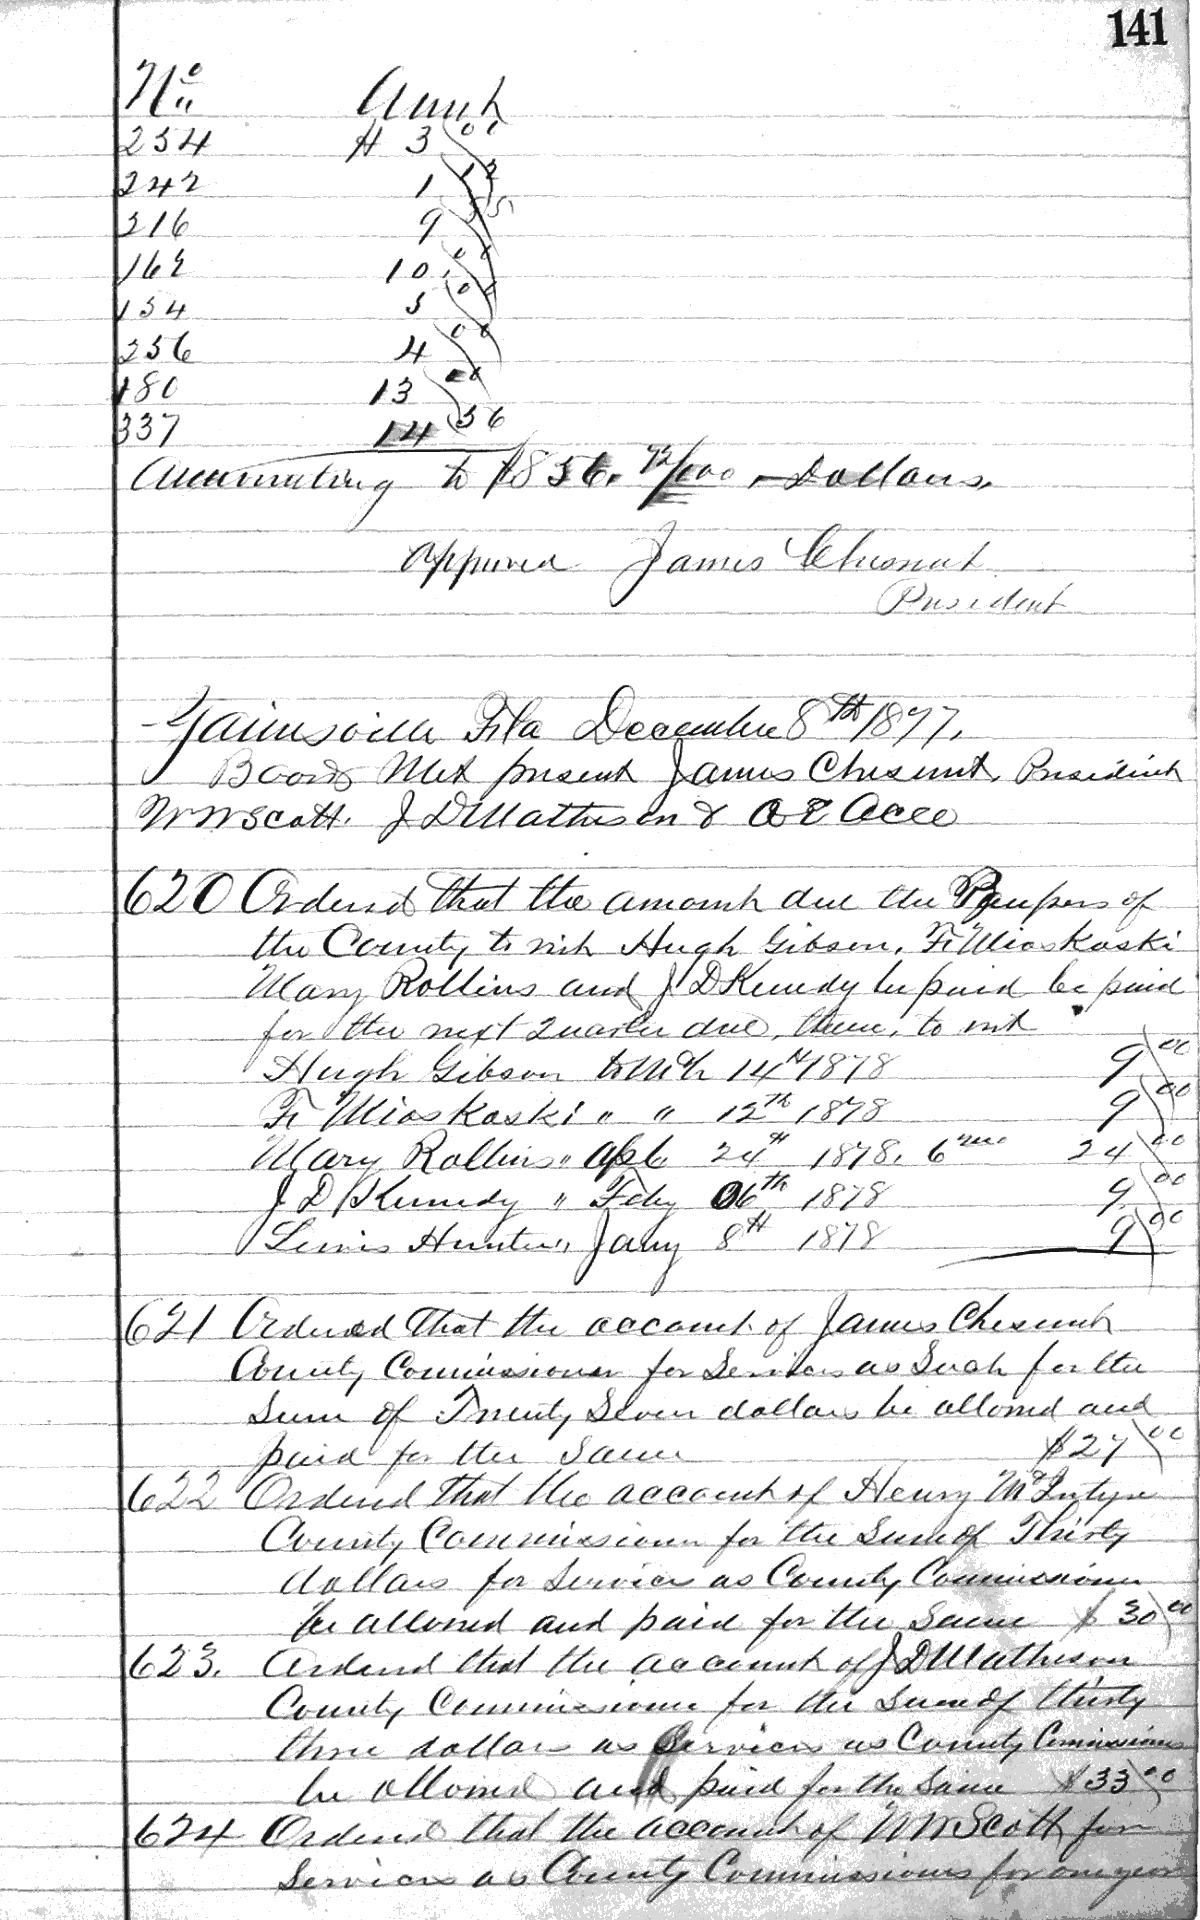 141
No Amnt
254 $ 3 00
242 1 12
216 9 55
162 10 00
154 5 00
256 4 00
180 13 00
337 14 56
Ammounting to $856. 72/100 Dollars.
Approved James Chesnut
President
Gainesville Fla December 8th 1877.
Board Met present James Chesnut, President
W W Scott. J D Matheson & A E Aceo
620 Ordered that the amount due the Paupers of
the County to wit Hugh Gibson, Fr Mioskoski
Mary Rollins and J D Kenedy be paid be paid
for the next Quarter due them, to wit
Hugh Gibson to Mch 14th 1878 9 00
Fr Mioskoski " " 12th 1878 9 00
Mary Rollins " Apl 24th 1878. 6 mo 24 00
J D Kennedy " Feby 06th 1878 9 00
Lewis Hunter " Jany 8th 1878 9 00
621 Ordered that the account of James Chesnut
County Commissioner for Services as Such for the
Sum of Twenty Seven dollars be allowed and
paid for the Same $27 00
622 Ordered that the account of Henry McIntyre
County Commissioner for the Sum of Thirty
dollars for Services as County Commissioner
be allowed and paid for the Same $ 30 00
623. Ordered that the account of J D Matheson
County Commissioner for the Sum of thirty
three dollars as Services as County Comissioner
be allowed and paid for the Same $33 00
624 Ordered that the account of W W Scott for
Services as County Commissioner for one year